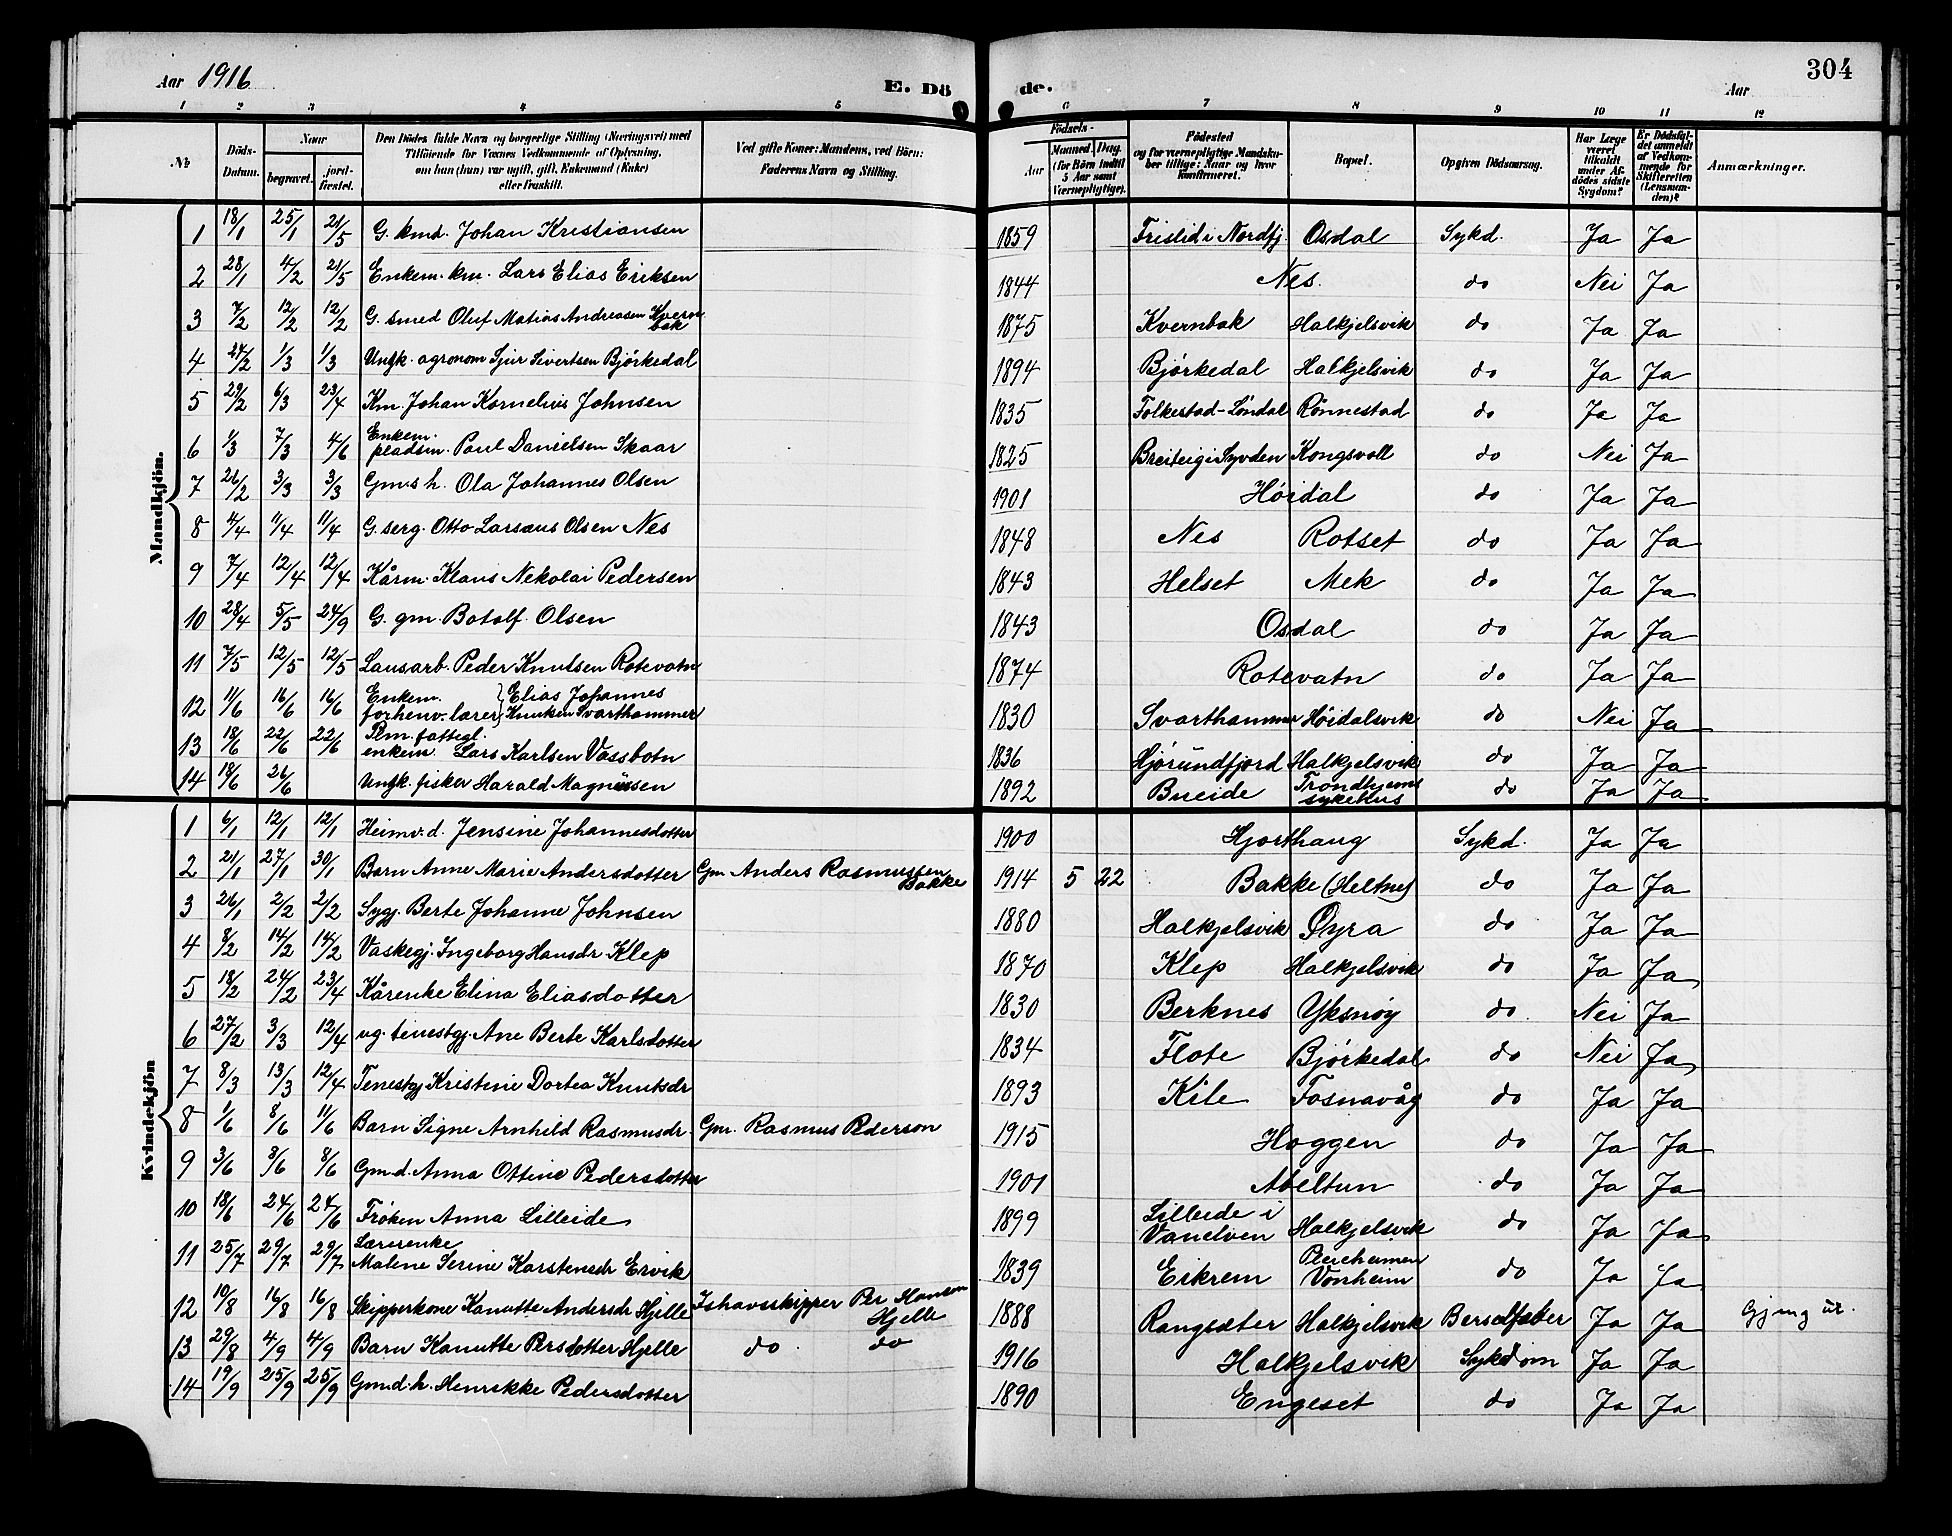 Aar 1916 E. Dö de. Aar 304
1 2 3 4 5 6 7 8 9 10 11 12
№ Döds-Datum. Naar begravet. jordfæstet. Den Dödes fulde Navn og borgerlige Stilling (Næringsvei) med Tilföiende for Voxnes Vedkommende af Oplysning, om han (hun) var ugift, gift, Enkemand (Enke) eller fraskilt. Ved gifte Koner: Mandens, ved Börn: Faderens Navn og Stilling. Födsels- Aar Maaned. Dag. (for Börn indtil 5 Aar samt Værnepligtige). Födested og for værnepligtige Mandskaber tillige: Naar og hvor konfirmeret. Bopæl. Opgiven Dödsaarsag. Har Læge været tilkaldt under Afdödes sidste Sygdom? Er Dödsfaldet anmeldt af Vedkommende for Skifteretten (Lensmanden)? Anmærkninger.
Mandkjön.
1 18/1 25/1 21/5 G. kmd. Johan Kristiansen 1859 Frislid i Nordfj. Osdal Sykd. Ja Ja
2 28/1 4/2 21/5 Enkem. km. Lars Elias Eriksen 1844 Nes. do Nei Ja
3 7/2 12/2 12/2 G. smed Oluf Matias Andreasen Kvernbak 1875 Kvernbak Halkjelsvik do Ja Ja
4 24/2 1/3 1/3 Ungk. agronom Sjur Sivertsen Bjørkedal 1894 Bjørkedal Halkjelsvik do Ja Ja
5 29/2 6/3 23/4 Km. Johan Kornelius Johnsen 1835 Folkestad-Løndal Rønnestad do Ja Ja
6 1/3 7/3 4/6 Enkem. pladsm. Paul Danielsen Skaar 1825 Breiteig i Syvden Kongsvoll do Nei Ja
7 26/2 3/3 3/3 Gm.s h. Ola Johannes Olsen 1901 Høidal do Ja Ja
8 4/4 11/4 11/4 G. serg. Otto Larsæus Olsen Nes 1848 Nes Rotset do Ja Ja
9 7/4 12/4 12/4 Kårm. Klaus Nekolai Pedersen 1843 Helset Mek do Ja Ja
10 28/4 5/5 24/9 G. gm. Botolf Olsen 1843 Osdal do Ja Ja
11 7/5 12/5 12/5 Lausarb. Peder Knutsen Rotevatn 1874 Rotevatn do Ja Ja
12 11/6 16/6 16/6 Enkem. forhenv. lærer Elias Johannes Knutsen Svarthammer 1830 Svarthammer Høidalsvik do Nei Ja
13 18/6 22/6 22/6 Plm. fattegl. enkem. Lars Karlsen Vassbotn 1836 Hjørundfjord Halkjelsvik do Ja Ja
14 18/6 26/6 Ungk. fisker Harald Magnussen 1892 Bueide Trondhjems sykehus do Ja Ja
Kvindekjön
1 6/1 12/1 12/1 Heimv. d. Jensine Johannesdotter 1900 Hjorthaug Sykd. Ja Ja
2 21/1 27/1 30/1 Barn Anne Marie Andersdotter Gm Anders Rasmussen Bakke 1914 5 22 Bakke (Heltne) do Ja Ja
3 26/1 2/2 2/2 Sygj. Berte Johanne Johnsen 1880 Halkjelsvik Øyra do Ja Ja
4 8/2 14/2 14/2 Vaskegj. Ingeborg Hansdr Klep 1870 Klep Halkjelsvik do Ja Ja
5 18/2 24/2 23/4 Kårenke Elina Eliasdotter 1830 Berknes Yksnøy do Nei Ja
6 27/2 3/3 12/4 ug. tenestgj. Ane Berte Karlsdotter 1834 Flote Bjørkedal do Nei Ja
7 8/3 13/3 12/4 Tenestgj Kristine Dortea Knutsdr 1893 Kile Fosnavåg do Ja Ja
8 1/6 8/6 11/6 Barn Signe Arnhild Rasmusdr. Gm. Rasmus Pederson 1915 Hoggen do Ja Ja
9 3/6 8/6 8/6 Gm.d. Anna Ottine Pedersdotter 1901 Abeltun do Ja Ja
10 18/6 24/6 24/6 Frøken Anna Lilleide 1899 Lilleide i Vanelven Halkjelsvik do Ja Ja
11 25/7 29/7 29/7 Lærerenke Malene Serine Karstensdr Ervik 1839 Eikrem Pleieheimen Vonheim do Ja Ja
12 10/8 16/8 16/8 Skipperkone Kanutte Andersdr Hjelle Ishavsskipper Per Hanson Hjelle 1888 Rangsæter Halkjelsvik Berselfeber Ja Ja
13 29/8 4/9 4/9 Barn Kanutte Persdotter Hjelle do do 1916 Halkjelsvik Sykdom Ja Ja
14 19/9 25/9 25/9 Gm.d. h. Henrikke Pedersdotter 1890 Engeset do Ja Ja